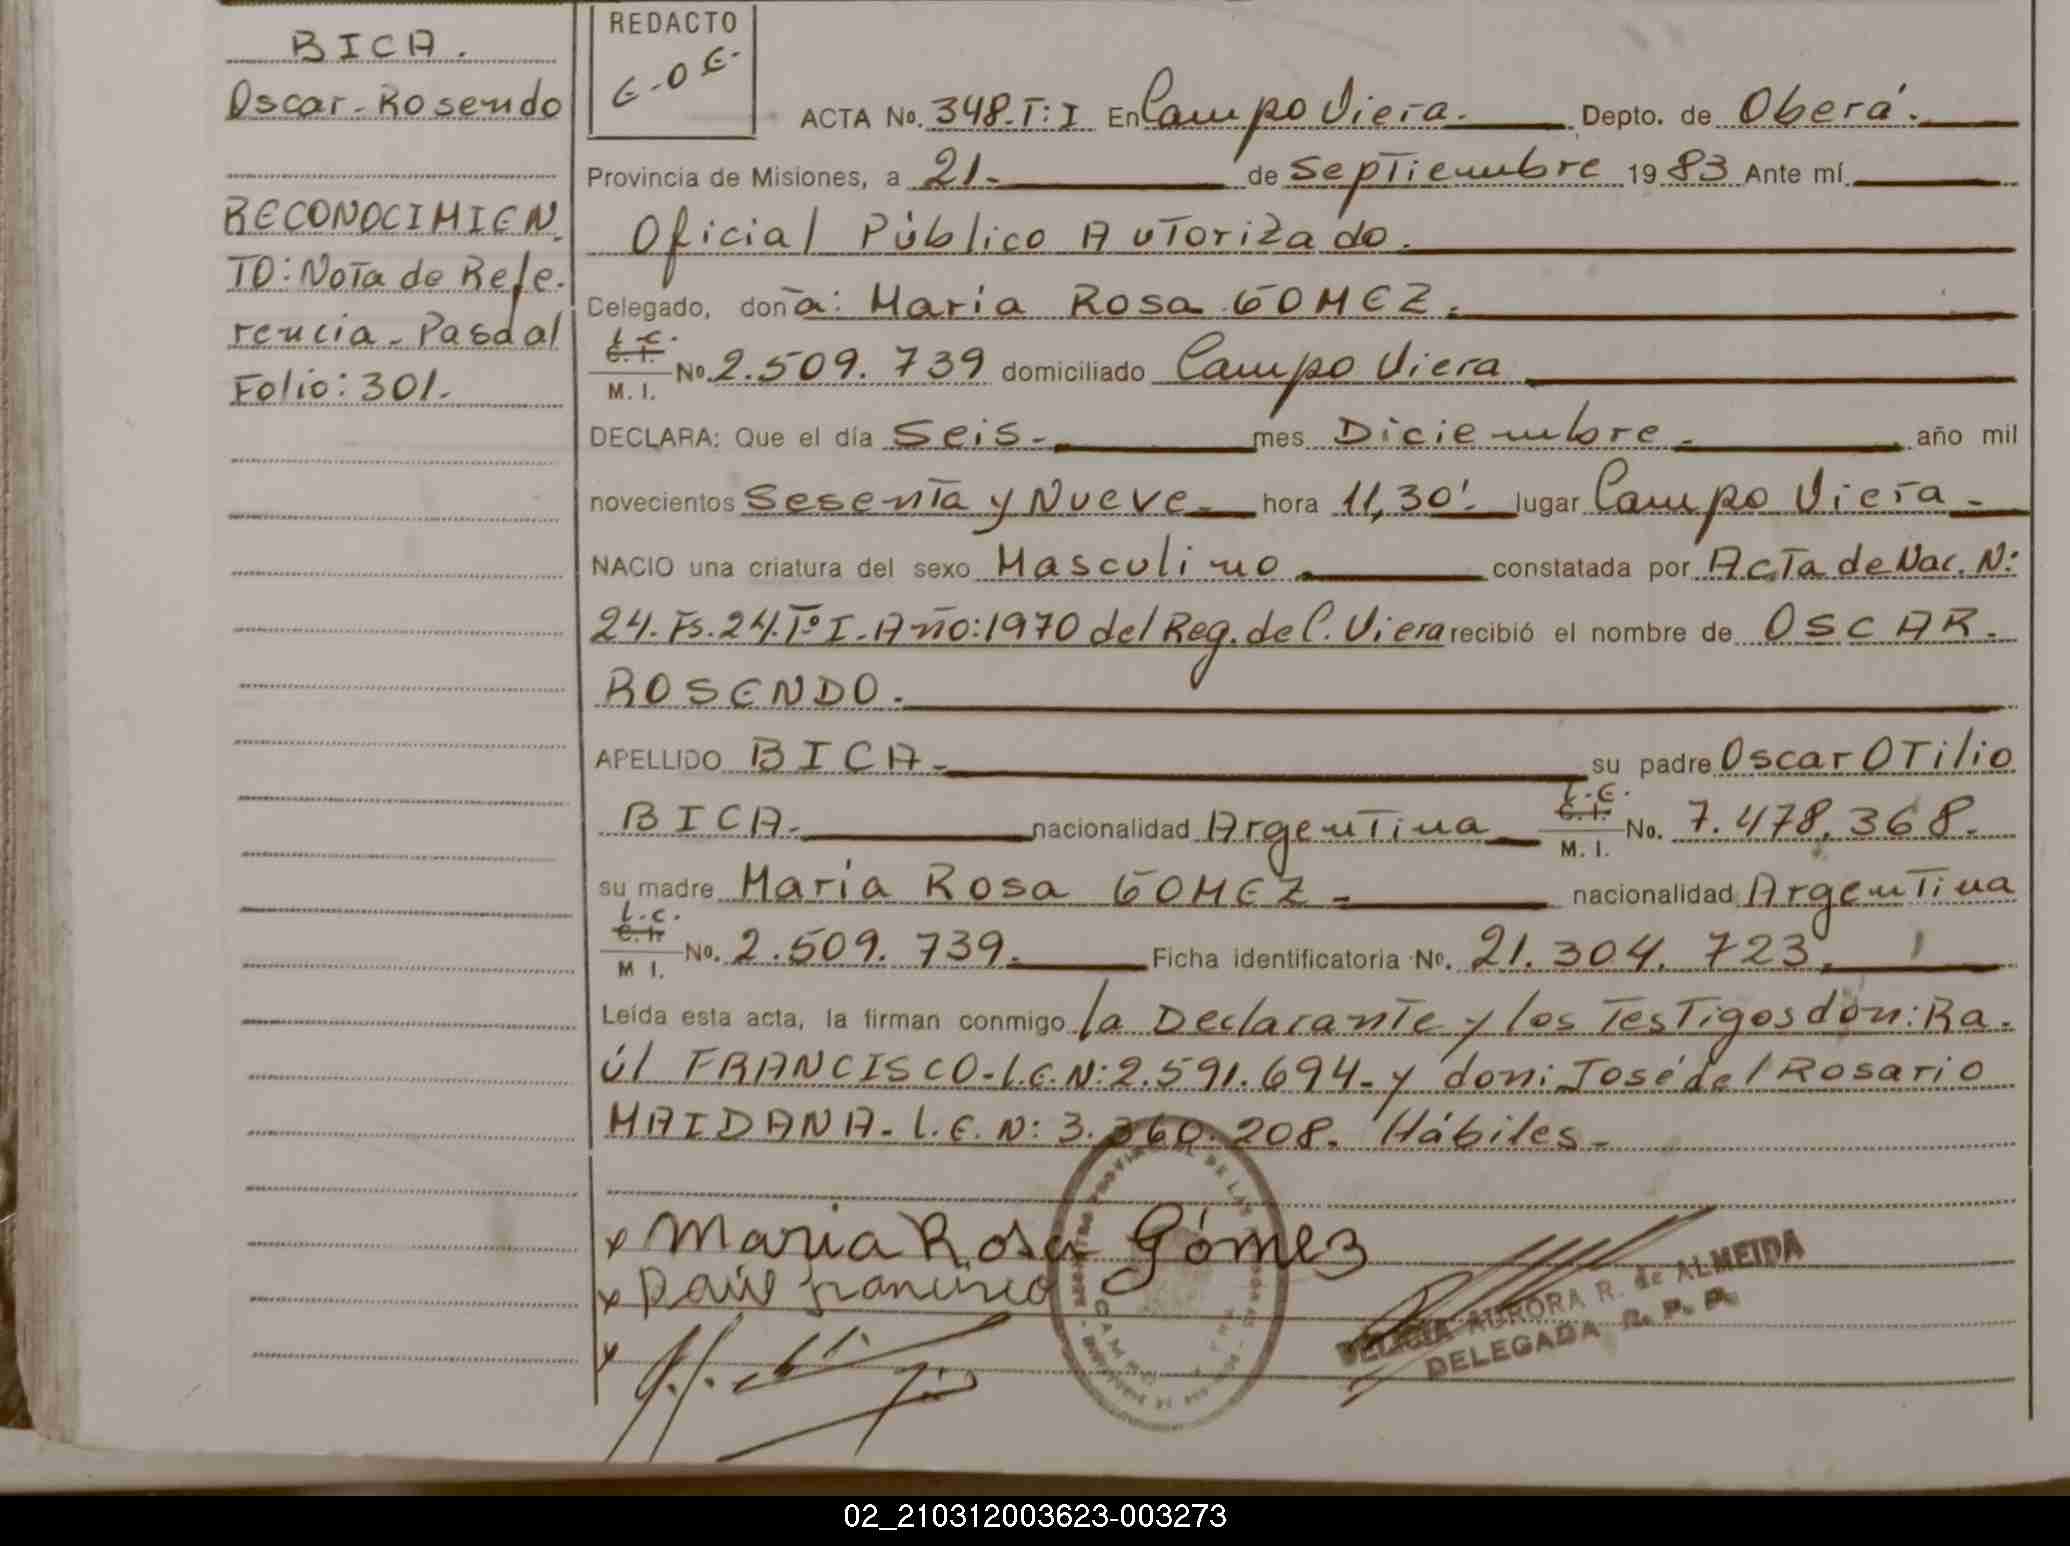 BICA.
Oscar-Rosendo
RECONOCIMIEN.
TO: Nota de Refe.
rencia-Pasa al
Folio: 301.-
REDACTO
E-O E-
ACTA No. 348.T: I En Campo Viera. Depto. de Oberá.
Provincia de Misiones, a 21.- de Septiembre 19 83 Ante mí
Oficial Público Autorizado.
Celegado, don a: María Rosa GOMEZ.
L.C.
C.I.
M. I.
No. 2.509.739 domiciliado Campo Viera
DECLARA: Que el día Seis.- mes Diciembre.- año mil
novecientos Sesenta y Nueve.- hora 11,30'. lugar Campo Viera.-
NACIO una criatura del sexo Masculino. constatada por Acta de Nac. N:
24. Fs. 24. Tº I. Año: 1970 del Reg. de C. Viera recibió el nombre de OSCAR.
ROSENDO.
APELLIDO BICA.- su padre Oscar Otilio
BICA.- nacionalidad Argentina
L.E.
C.I.
M. I.
No. 7.478.368.
su madre María Rosa GOMEZ.- nacionalidad Argentina
L.C.
C.I.
M I.
No. 2.509.739. Ficha identificatoria No. 21.304.723.
Leída esta acta, la firman conmigo la Declarante y los Testigos don: Ra.
úl FRANCISCO-L.E.N: 2.591.694- y don: José del Rosario
MAIDANA-L.E.N: 3.360.208. Hábiles.-
x Maria Rosa Gómez
x Raúl Francisco
x
FELICIA AURORA R. de ALMEIDA
DELEGADA R. P. P.
02_210312003623-003273